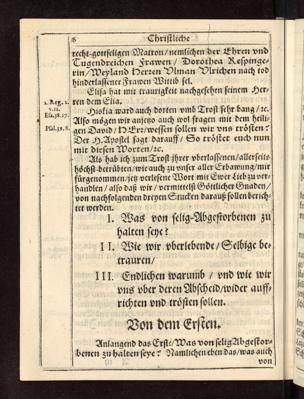 8 Christliche
recht-gottseligen Matron/ nemlichen der Ehren vnd
Tugendreichen Frawen/ Dorothea Respinge-
rin/ Weyland Herren Vlman Vlrichen nach tod
hinderlassene Frawen Wittib sel.
Elisa hat mit trauwigkeit nachgesehen seinem Her-
ren dem Elia.
2. Reg. 2.
v. 12.
Hiskia ward auch dorten vmb Trost sehr bang/ ꝛc.
Esa. 38. 17.
Also mögen wir anjetzo auch wol fragen mit dem heili-
gen David/ HErr/ wessen sollen wir vns trösten?
Psal. 39. 8.
Der H. Apostel sagt darauff/ So tröstet euch nun
mit diesen Worten/ ꝛc.
Als hab ich zum Trost ihrer vberlassenen/ allerseits
höchst-betrübten/ wie auch zu vnser aller Erbawung/ mir
fürgenommen jetz verlesene Wort mit Ewer Lieb zu ver-
handlen/ also daß wir/ vermittelst Göttlicher Gnaden/
von nachfolgenden dreyen Stucken darauß sollen berich-
tet werden.
I. Was von selig-Abgestorbenen zu
halten seye?
II. Wie wir vberlebende/ Selbige be-
trauren/
III. Endlichen warumb/ vnd wie wir
vns vber deren Abscheid/ wider auff-
richten vnd trösten sollen.
Von dem Ersten.
Anlangend das Erste/ Was von selig Abgestor-
benen zu halten seye? Namlichen eben das/ was auch
von